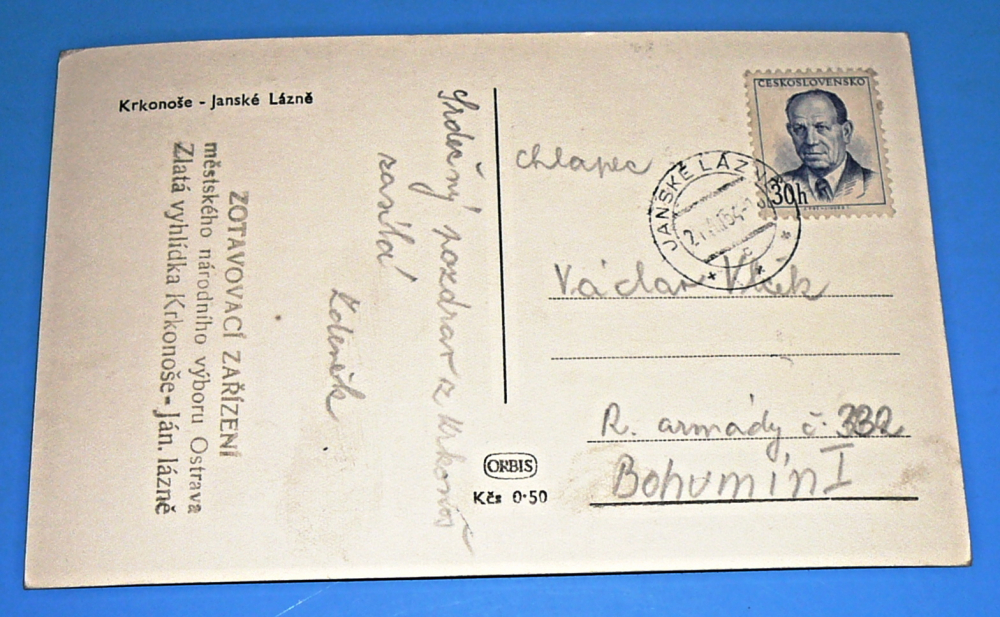 Krkonoše - Janské Lázně
ZOTAVOVACÍ ZAŘÍZENÍ
městského národního výboru Ostrava
Zlatá vyhlídka Krkonoše - Ján. lázně
Srdečný pozdrav z Krkonoš
zasílá
Zdeněk
ORBIS
Kčs 0·50
ČESKOSLOVENSKO
30h
JANSKÉ LÁZNĚ
c
chlapec
Václav
R. armády č. 332
Bohumín I